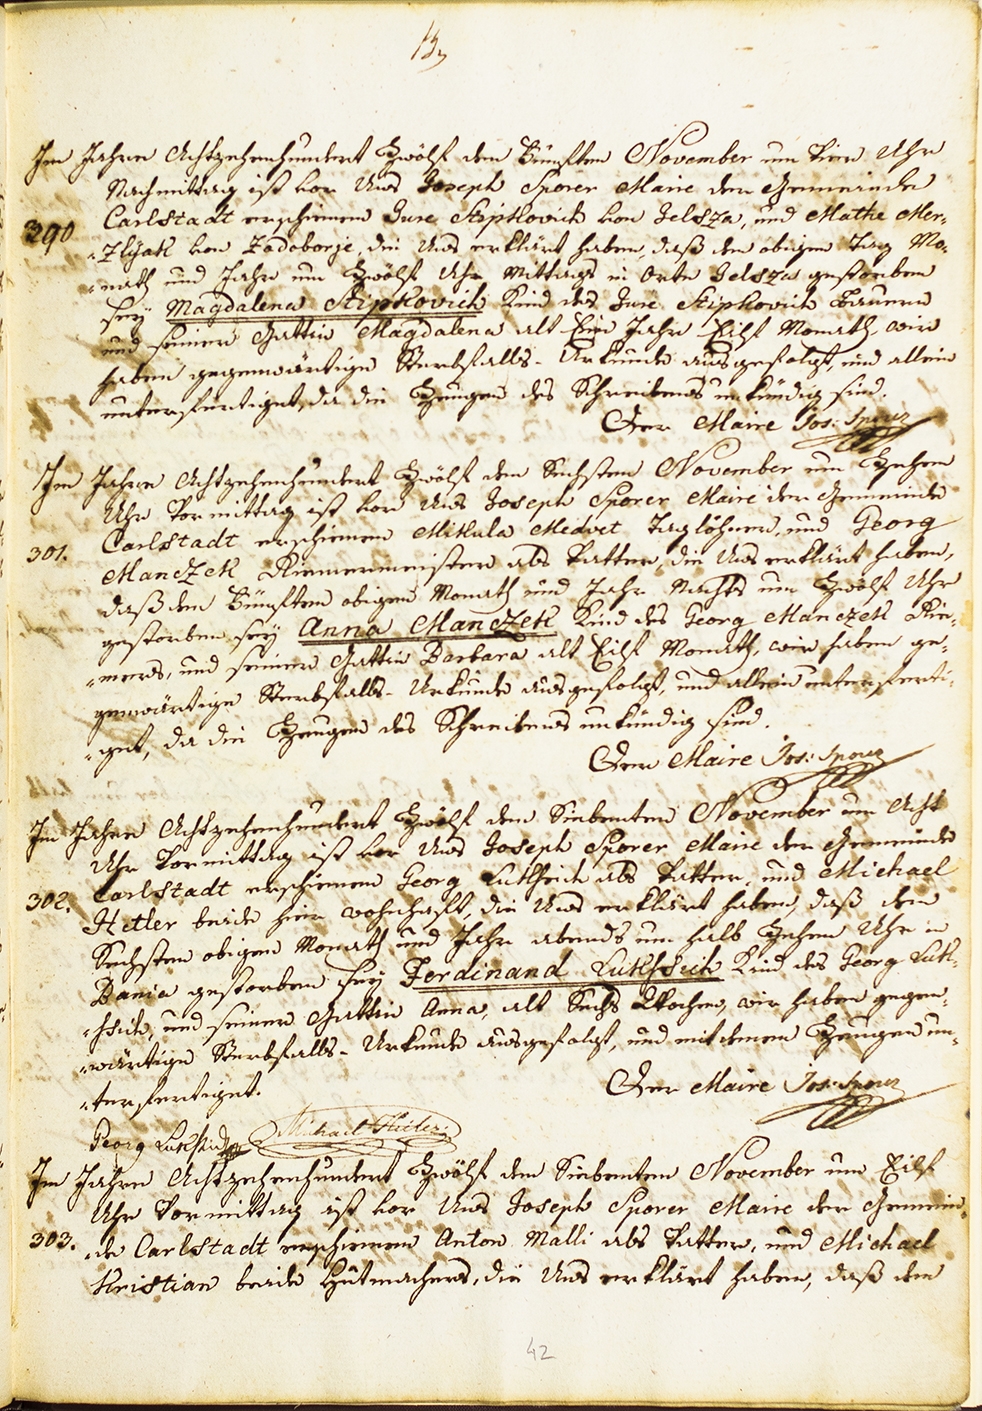 Im Jahre Achtzehenhundert Zwölf den Fünften November um Vier Uhr
Nachmittag ist vor Uns Joseph Sporer Maire der Gemeinde
390 Carlstadt erschienen Jure Stipkovich von Jelsza, und Mathe Mer-
-zlyak von Zadoborje, die Uns erklärt haben, daß den obigen Tag Mo-
-nath und Jahr um Zwölf Uhr Mittags in Orte Jelsza gestorben
sey Magdalena Stipkovich Kind des Jure Stipkovich Bauern
und seiner Gattin Magdalena alt Ein Jahr Eilf Monath, wir
haben gegenwärtige Sterbfalls-Urkunde ausgefolgt, und allein
unterfertiget, da die Zeugen des Schreibens unkündig sind.
Der Maire Jos: Sporer
Im Jahre Achtzehenhundert Zwölf den Sechsten November um Zehen
Uhr Vormittag ist vor Uns Joseph Sporer Maire der Gemeinde
301. Carlstadt erschienen Mikula Medvet Taglöhner, und Georg
Manczek Riemermeister als Vatter, die Uns erklärt haben,
daß den Fünften obigen Monath und Jahr Nachts um Zwölf Uhr
gestorben sey Anna Manczek Kind des Georg Manczek Rie-
-mers, und seiner Gattin Barbara alt Eilf Monath, wir haben ge-
genwärtige Sterbfalls-Urkunde ausgefolgt, und allein unterferti-
-get, da die Zeugen des Schreibens unkündig sind.
Der Maire Jos: Sporer
Im Jahre Achtzehenhundert Zwölf den Siebenten November um Acht
Uhr Vormittag ist vor Uns Joseph Sporer Maire der Gemeinde
302. Carlstadt erschienen Georg Lukshich als Vatter, und Michael
Hitler beide hier wohnhaft, die Uns erklärt haben, daß den
Sechsten obigen Monath und Jahr abends um halb Zehen Uhr in
Bania gestorben sey Ferdinand Lukshich Kind des Georg Luk-
-shich, und seiner Gattin Anna, alt Sechs Wochen, wir haben gegen-
-wärtige Sterbfalls-Urkunde ausgefolgt, und mit denen Zeugen un-
-terfertiget.
Der Maire Jos: Sporer
Georg Lukshich Michael Hitler
Im Jahre Achtzehenhundert Zwölf den Siebenten November um Eilf
Uhr Vormittag ist vor Uns Joseph Sporer Maire der Gemein-
303. -de Carlstadt erschienen Anton Malli als Vatter, und Michael
Kristian beide Hutmachers, die Uns erklärt haben, daß den
42